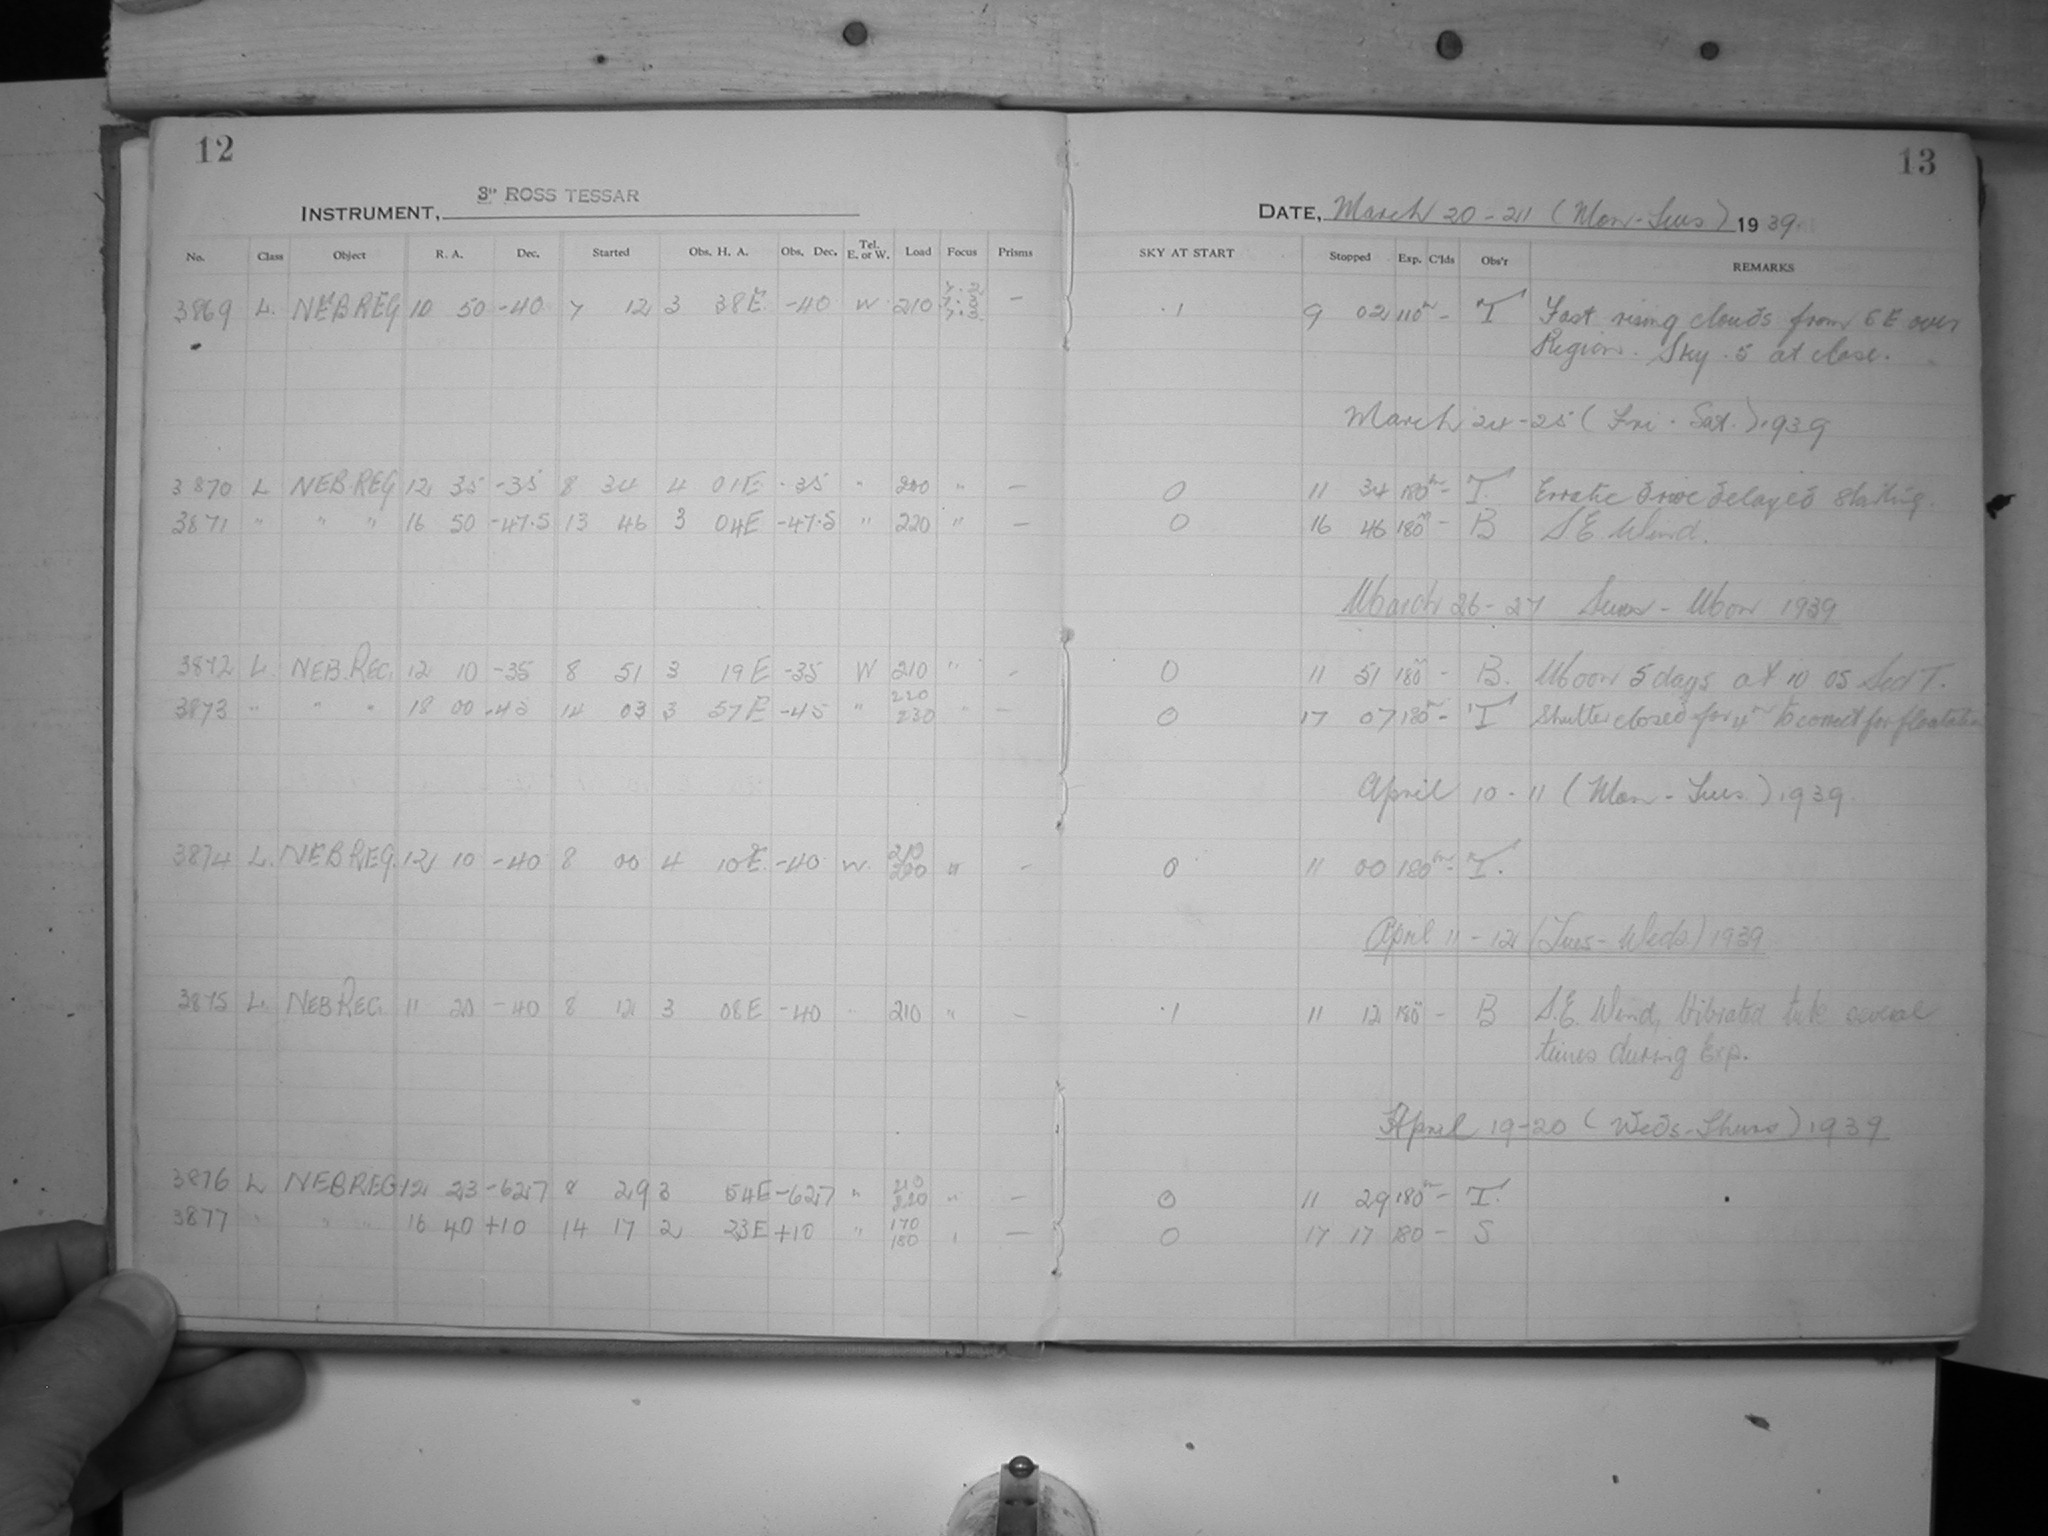 12
13
3" ROSS TESSAR
INSTRUMENT,
DATE, March 20-21 (Mon-Tues) 1939
No. Class Object R. A. Dec. Started Obs. H. A. Obs. Dec. Tel. E. or W. Load Focus Prisms SKY AT START Stopped Exp. C'lds Obs'r REMARKS
3869 L. NEB REG 10 50 -40 7 12 3 38E -40 W 210 7.3 — .1 9 02 110m - T Fast rising clouds from SE over
Region. Sky .5 at close.
March 24-25 (Fri. Sat.) 1939
3870 L NEB.REG 12 35 -35 8 34 4 01E -35 " 200 " — 0 11 34 180m - T. Erratic drive delayed starting.
3871 " " " 16 50 -47.5 13 46 3 04E -47.5 " 220 " — 0 16 46 180m - B S E Wind.
March 26-27 Sun - Mon 1939
3872 L. NEB.REG. 12 10 -35 8 51 3 19E -35 W 210 " - 0 11 51 180m - B. Moon 5 days at 10 05 Sid T.
3873 " " " 18 00 -45 14 03 3 57E -45 " 220 230 " — 0 17 07 180m - T Shutter closed for 4m to correct for floatation
April 10-11 (Mon-Tues.) 1939.
3874 L. NEB REG. 12 10 -40 8 00 4 10E. -40 W. 210 220 " - 0 11 00 180m - T.
April 11-12 (Tues-Weds) 1939
3875 L. NEB REG. 11 20 -40 8 12 3 08E -40 " 210 " - .1 11 12 180m - B S.E. Wind, Vibrated tube several
times during Exp.
April 19-20 (Weds-Thurs) 1939
3876 L NEB REG 12 23 -62.7 8 29 3 54E -62.7 " 210 220 " — 0 11 29 180m - T.
3877 " " " 16 40 +10 14 17 2 23E +10 " 170 180 " — 0 17 17 180 - S